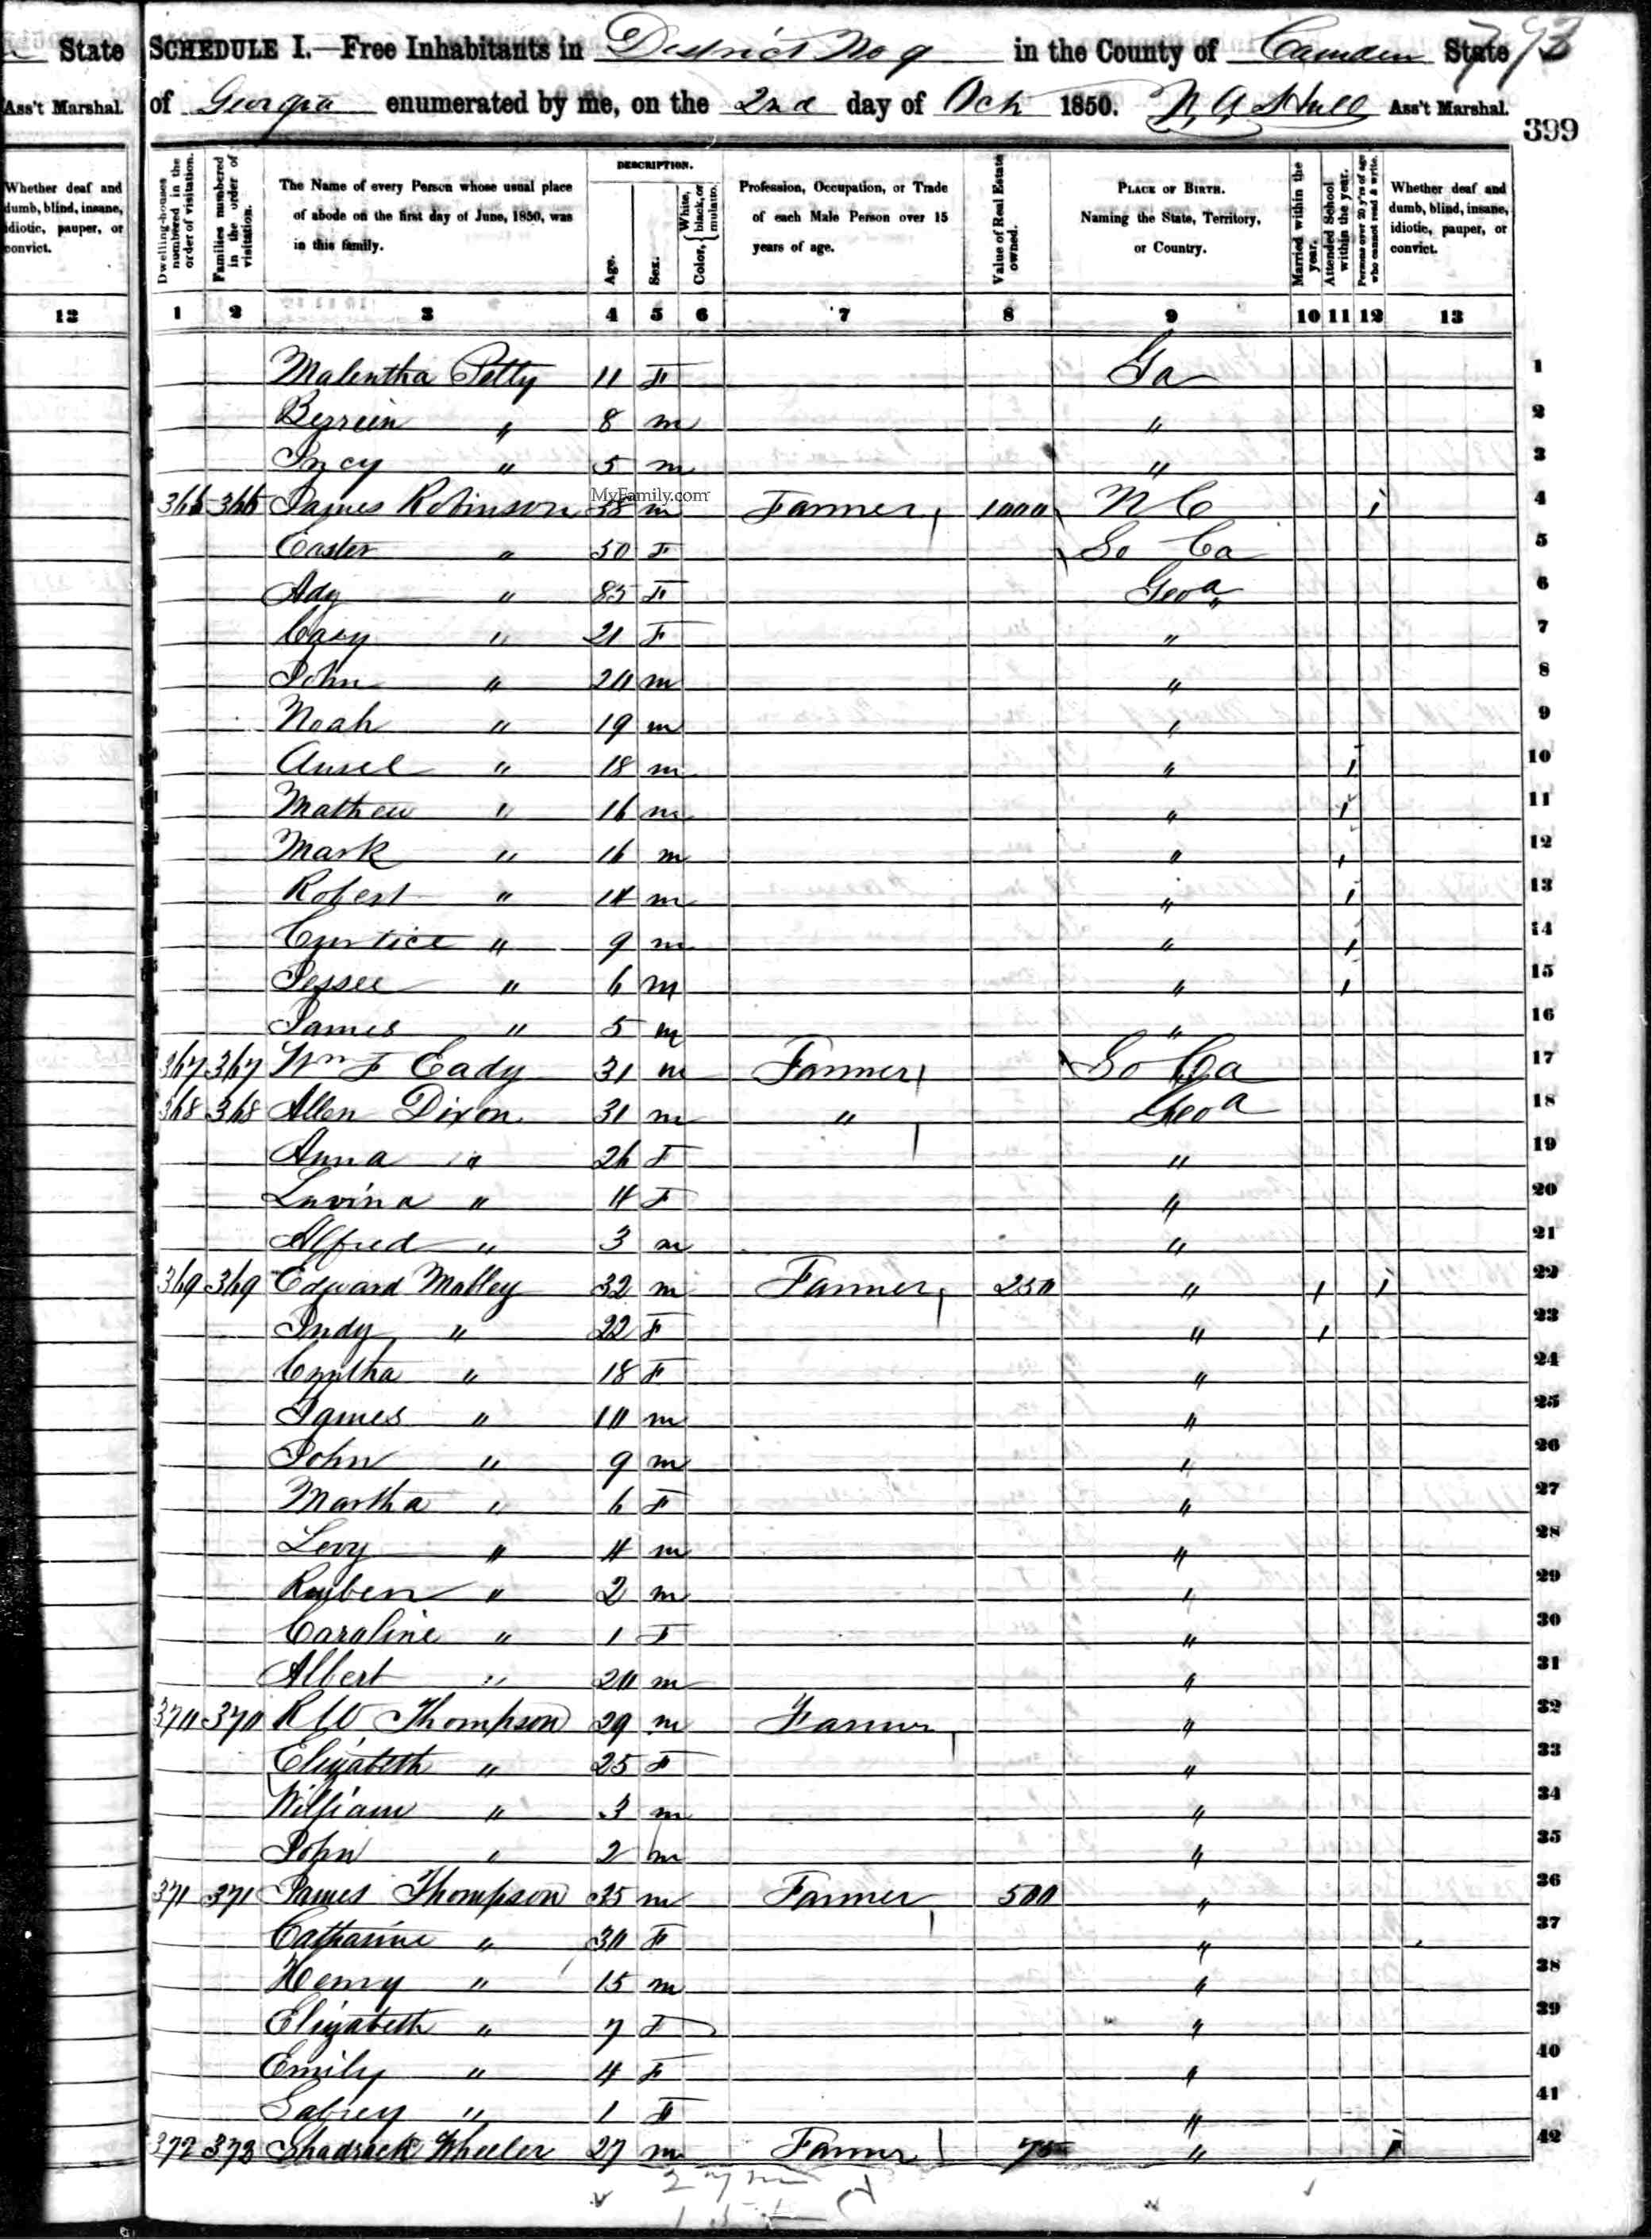 State
Ass't Marshal.
Whether deaf and
dumb, blind, insane,
idiotic, pauper, or
convict.
13
SCHEDULE I.—Free Inhabitants in District No 9 in the County of Camden State
of Georgia enumerated by me, on the 2nd day of Oct 1850. Ass't Marshal.
399
Dwelling-houses numbered in the order of visitation.
Families numbered in the order of visitation.
The Name of every Person whose usual place of abode on the first day of June, 1850, was in this family.
DESCRIPTION.
Age.
Sex.
Color, { White, black, or mulatto.
Profession, Occupation, or Trade of each Male Person over 15 years of age.
Value of Real Estate owned.
PLACE OF BIRTH. Naming the State, Territory, or Country.
Married within the year.
Attended School within the year.
Persons over 20 y'rs of age who cannot read & write.
Whether deaf and dumb, blind, insane, idiotic, pauper, or convict.
1 2 3 4 5 6 7 8 9 10 11 12 13
Malintha Petty 11 F Ga 1
Berrien " 8 m " 2
" 5 m " 3
366 366 James Robinson 58 m Farmer 1000 N C 1 4
MyFamily.com
Easter " 50 F So Ca 5
Ady " 85 F Geoa 6
Casy " 21 F " 7
John " 20 m " 8
Noah " 19 m " 9
Ansel " 18 m " 1 10
Mathew " 16 m " 1 11
Mark " 16 m " 1 12
Robert " 14 m " 1 13
Curtice " 9 m " 1 14
Jessee " 6 m " 1 15
James " 5 m " 16
367 367 Wm J Eady 31 m Farmer So Ca 17
368 368 Allen Dixon 31 m " Geoa 18
Anna " 26 F " 19
Luvina " 4 F " 20
Alfred " 3 m " 21
369 369 Edward Mobley 32 m Farmer 250 " 1 1 22
Judy " 22 F " 1 23
Cyntha " 18 F " 24
James " 10 m " 25
John " 9 m " 26
Martha " 6 F " 27
Levy " 4 m " 28
Ruben " 2 m " 29
Caroline " 1 F " 30
Albert " 20 m " 31
370 370 R W Thompson 29 m Farmer " 32
Elizabeth " 25 F " 33
William " 3 m " 34
John " 2 m " 35
371 371 James Thompson 35 m Farmer 500 " 36
Catharine " 30 F " 37
Henry " 15 m " 38
Elizabeth " 7 F " 39
Emily " 4 F " 40
" 1 F " 41
372 373 Shadrack Wheeler 27 m Farmer 75 " 1 42
27 m
15 F